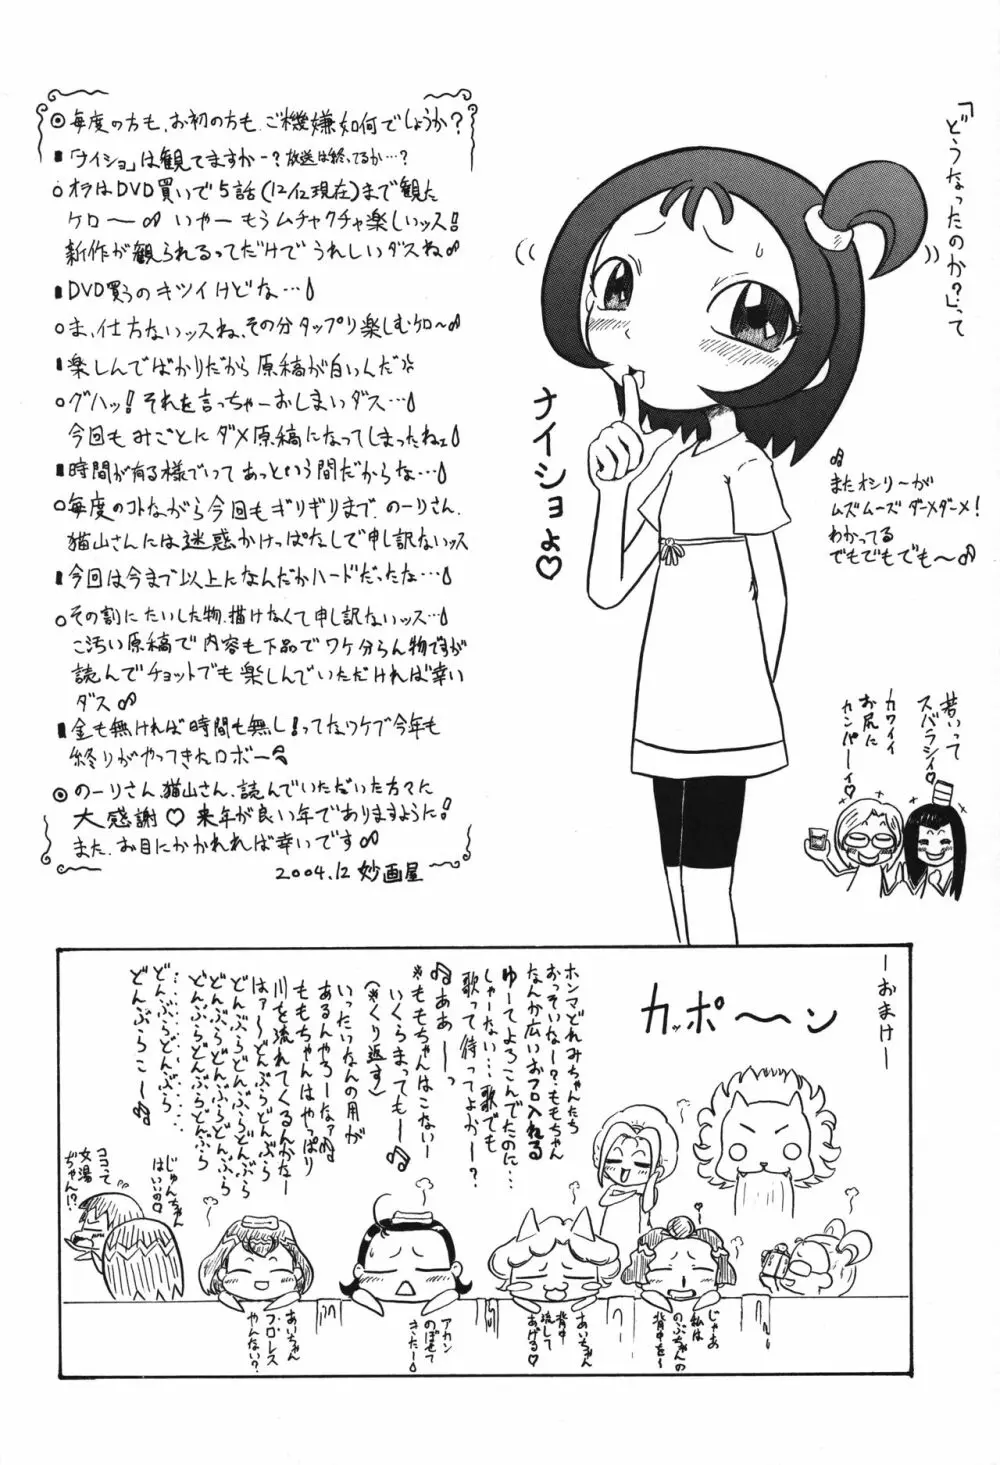 ◎毎度の方も、お初の方も、ご機嫌如何でしょうか?
■「ナイショ」は観てますかー?放送は終ってるか…?
○オラはDVD買いで5話(12/12現在)まで観た
ケロ〜♪ いやーもうムチャクチャ楽しいッス!
新作が観られるってだけでうれしいダスね♪
■DVD買うのキツイけどな…
○ま、仕方ないッスね、その分タップリ楽しむケロ〜♪
■楽しんでばかりだから原稿が白いんだ
○グハッ!それを言っちゃーおしまいダス…
今回もみごとにダメ原稿になってしまったねェ
■時間が有る様でいてあっという間だからな…
○毎度のコトながら今回もギリギリまで、のーりさん、
猫山さんには迷惑かけっぱなしで申し訳ないッス
■今回は今まで以上になんだかハードだったな…
○その割にたいした物、描けなくて申し訳ないッス…
こ汚い原稿で内容も下品でワケ分らん物ですが
読んでチョットでも楽しんでいただければ幸い
ダス♪
■金も無ければ時間も無し!ってなワケで今年も
終りがやってきたロボー
◎のーりさん、猫山さん、読んでいただいた方々に
大感謝♡来年が良い年でありますように!
また、お目にかかれれば幸いです♪
2004.12 妙画屋
「どうなったのか?」って
ナイショよ♡
♪
またオシリ〜が
ムズムーズ ダーメダーメ!
わかってる
でもでもでも〜♪
若いって
スバラシィ♡
カワイイ
お尻に
カンパーィ♡
ーおまけー
カッポ〜ン
ホンマどれみちゃんたち
おっそいな〜?ももちゃん
なんか広いおフロ入れる
ゆーてよろこんでたのに…
しゃーない…歌でも
歌って待ってよかー?
♪ああーっ
※ももちゃんはこないー
いくらまってもー♪
(※くり返す)
いったいなんの用が
あるんやろーなァ♪
ももちゃんはやっぱり
川を流れてくるんかなー
はァ〜どんぶらどんぶら
どんぶらどんぶらどんぶら
どんぶらどんぶらどんぶら
どんぶらどんぶらどんぶら
……
どんぶらどんぶら
どんぶらこ〜♪
じゅんちゃん
はいいの?
ココって
女湯
ぢゃん!?
じゃあ
私は
のぶちゃんの
背中を〜
あいちゃん
背中
流して
あげる♡
アカン
のぼせて
きたー
あいちゃん
プロレス
やんない?